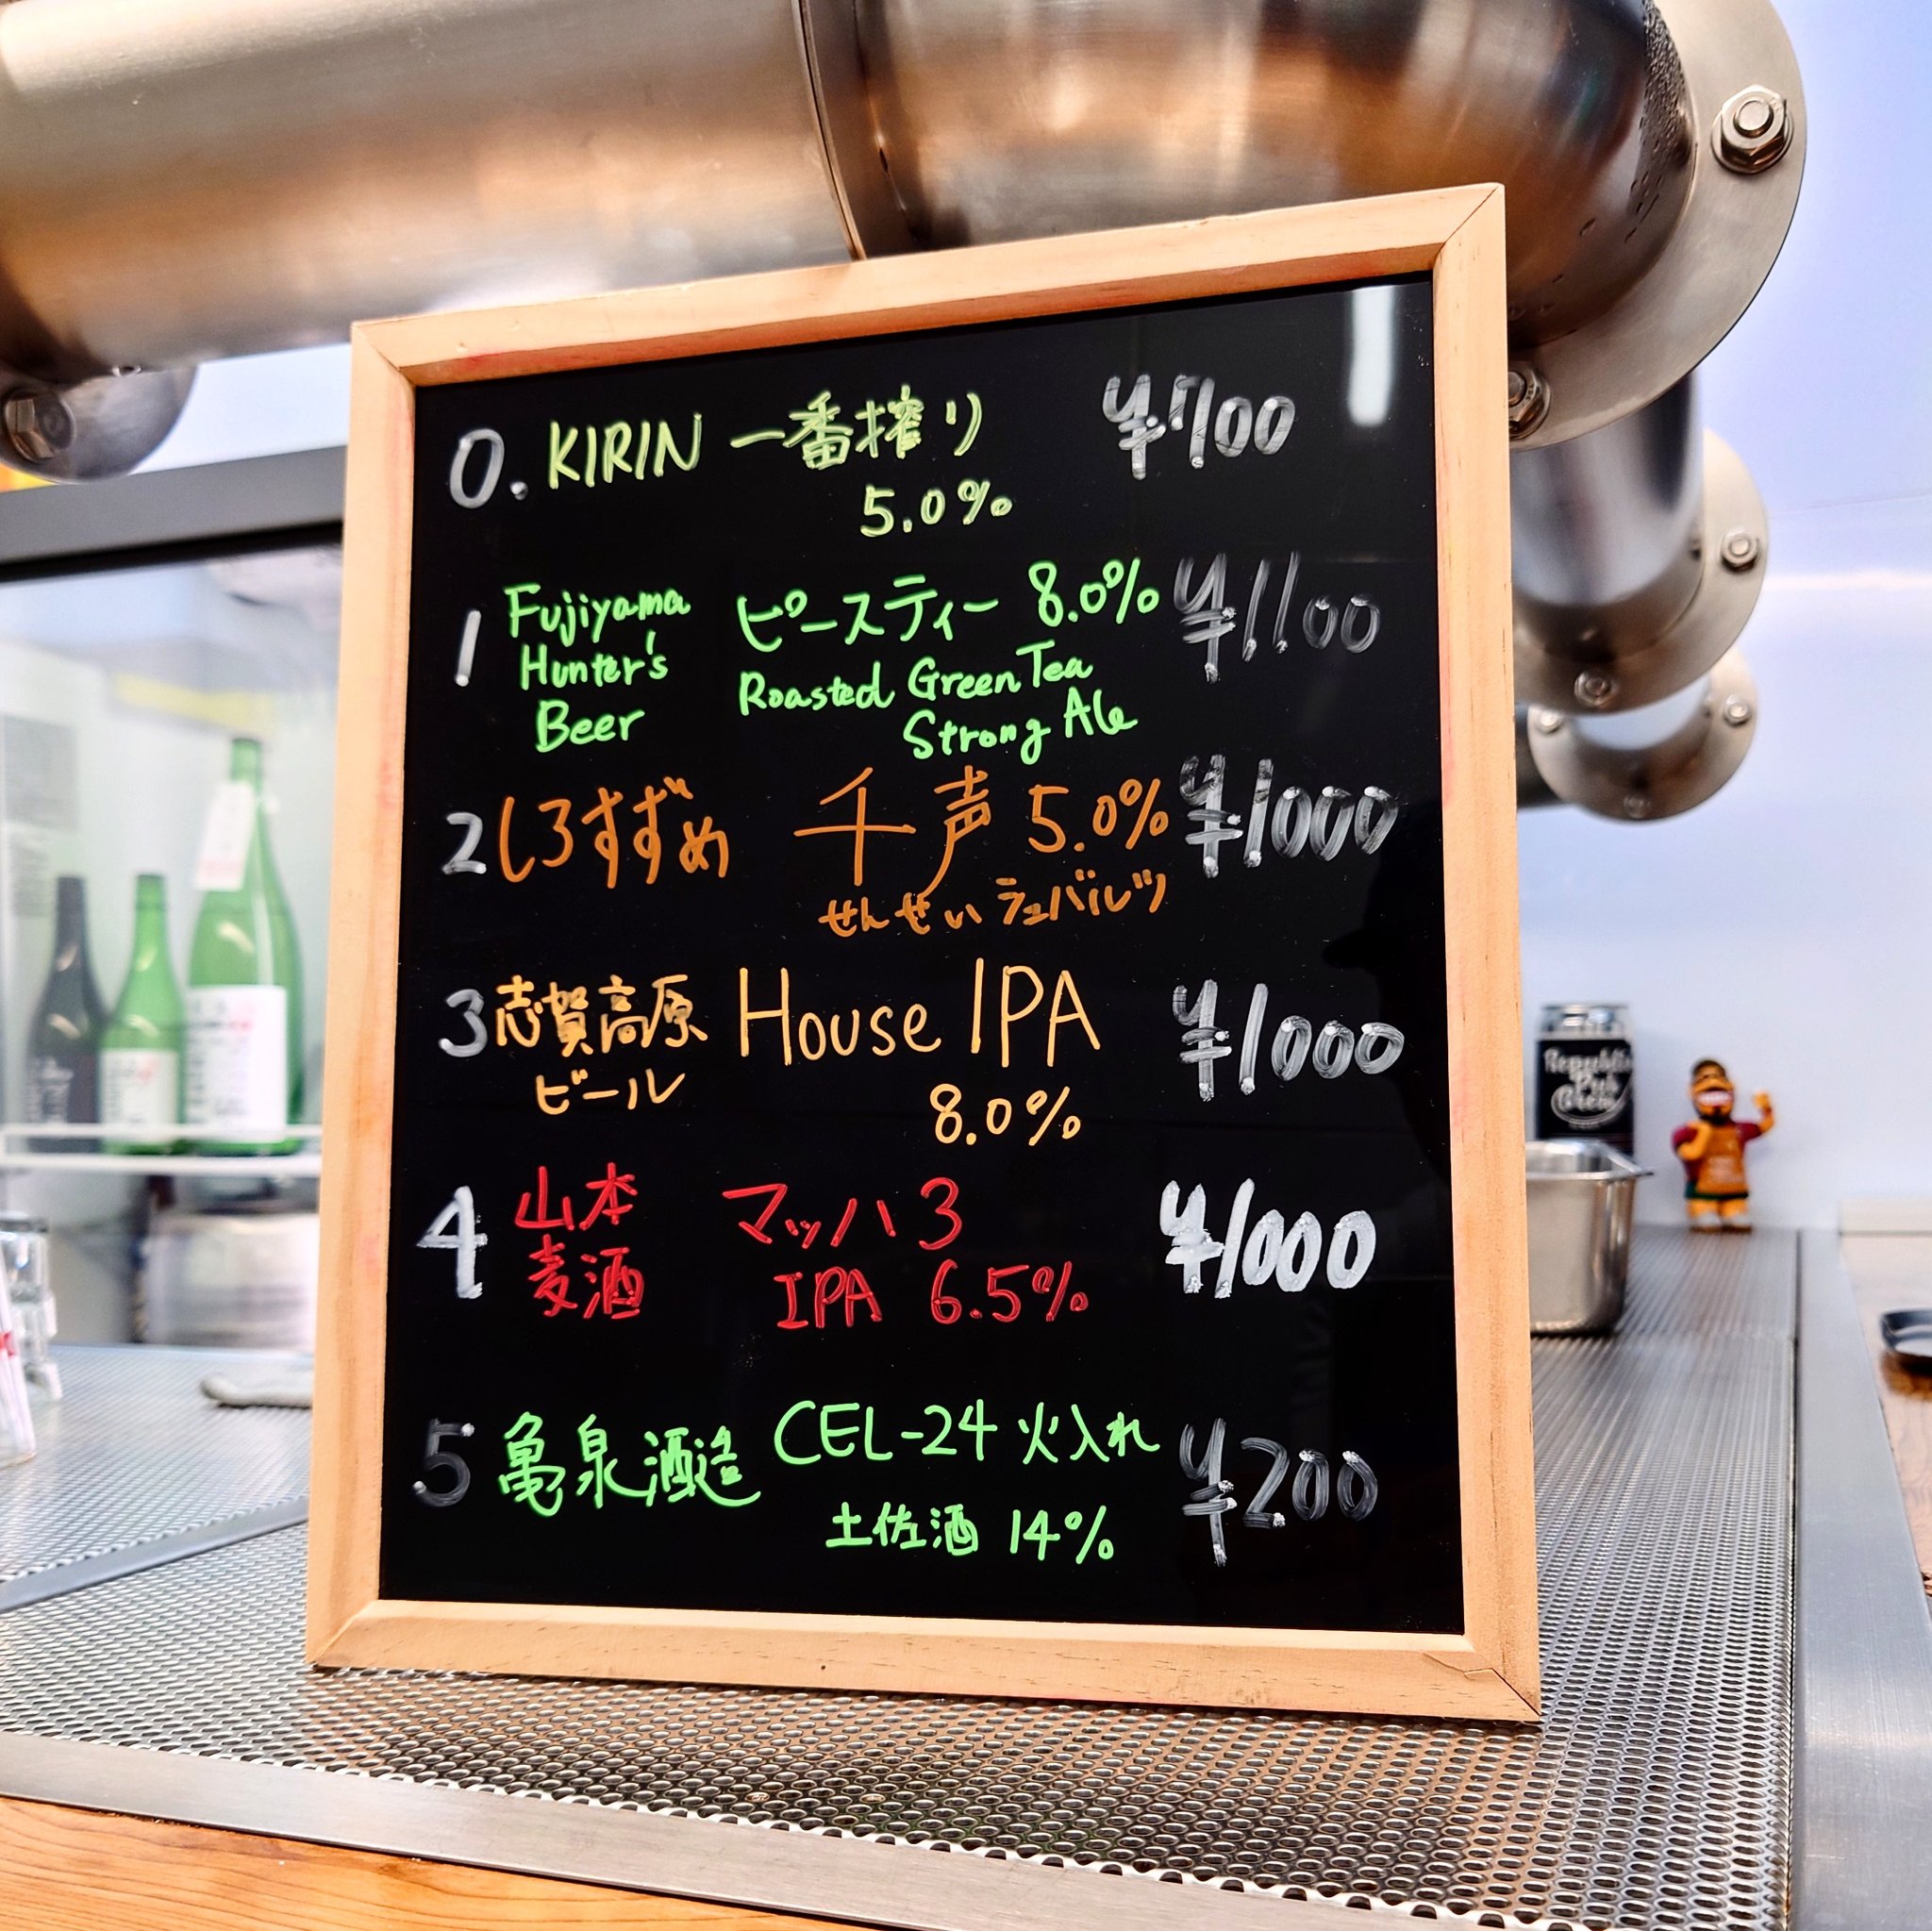 0. KIRIN 一番搾り ¥700
5.0%
1 Fujiyama Hunter's Beer ピースティー 8.0% ¥1100
Roasted Green Tea
Strong Ale
2 しろすずめ 千声 5.0% ¥1000
せんせい シュバルツ
3 志賀高原 House IPA ¥1000
ビール 8.0%
4 山本 マッハ3 ¥1000
麦酒 IPA 6.5%
5 亀泉酒造 CEL-24 火入れ ¥200
土佐酒 14%
Republic
Brew